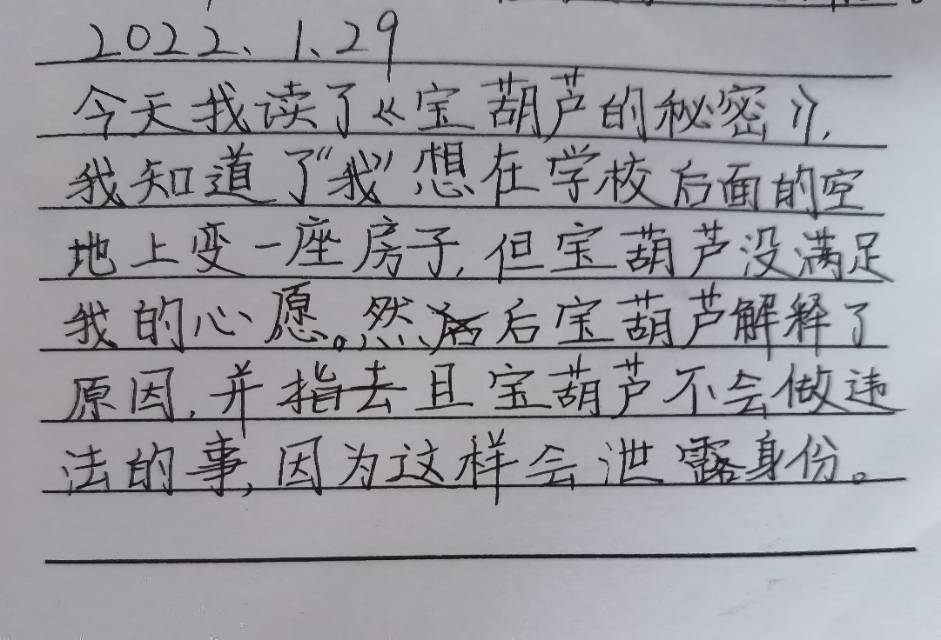 2022、1、29
今天我读了《宝葫芦的秘密》,
我知道了“我”想在学校后面的空
地上变一座房子,但宝葫芦没满足
我的心愿。然后宝葫芦解释了
原因,并指去且宝葫芦不会做违
法的事,因为这样会泄露身份。